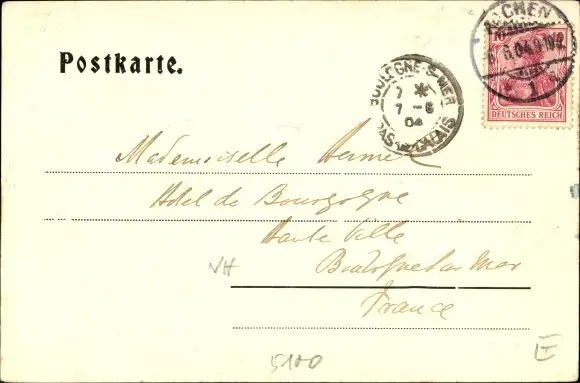 Postkarte.
AACHEN
6.6.04.9-10V.
* 1 a
DEUTSCHES REICH
BOULOGNE-S-MER
7 *
7 - 6
04
PAS-DE-CALAIS
Mademoiselle
Hotel de Bourgogne
Haute Ville
Boulogne sur mer
France
VH
5100